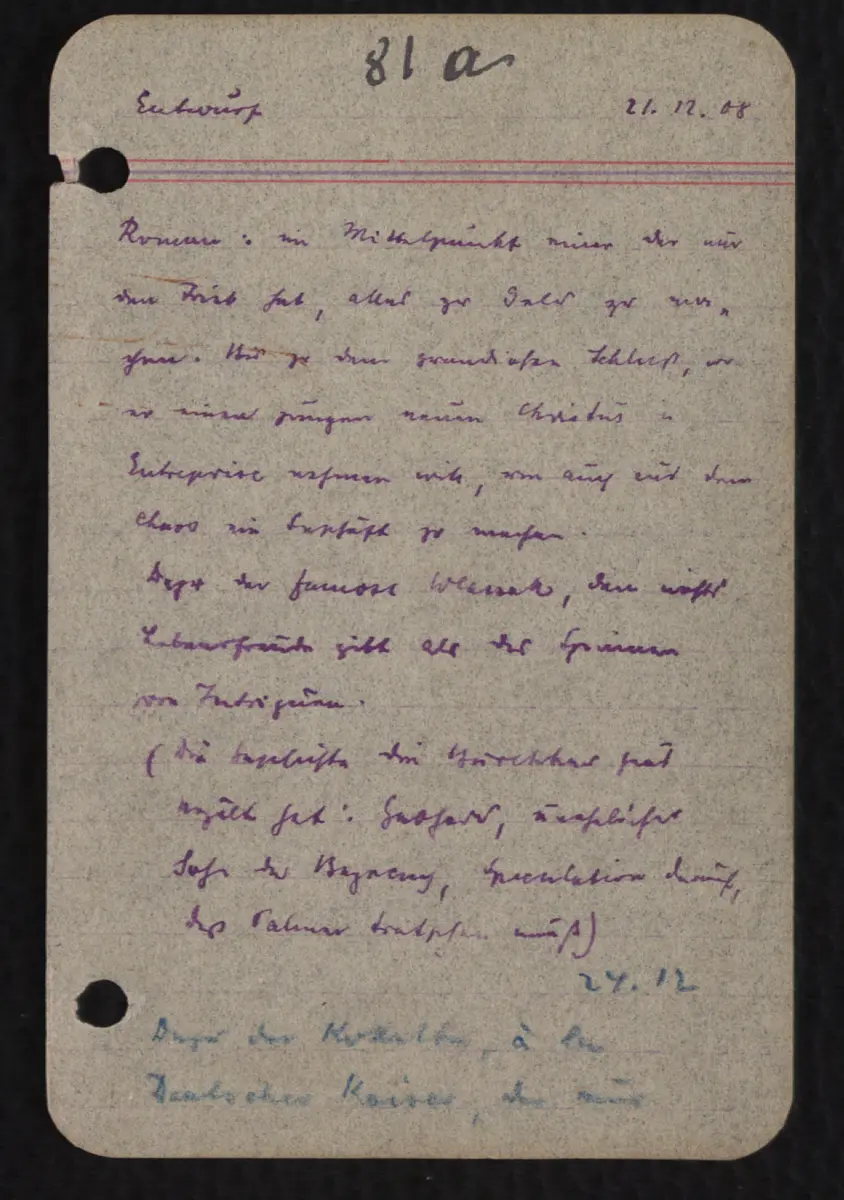 81 a
Entwurf 21. 12. 08
Roman: im Mittelpunkt einer der nur
den Trieb hat, alles zu Geld zu ma„
chen. Bis zu dem grandiosen Schluß, wo
er einen jungen neuen Christus in
Entreprise nehmen will, um auch aus dem
Chaos ein Geschäft zu machen.
Dazu der famose Wlassak, dem nichts
Lebensfreude gibt als das Spinnen
von Intriguen.
(Die Geschichte die
erzält hat: Gebhard, unehelicher
Sohn der Spekulation darauf,
daß Palmer muß)
24. 12
Dazu der à la
Deutscher Kaiser, der nur